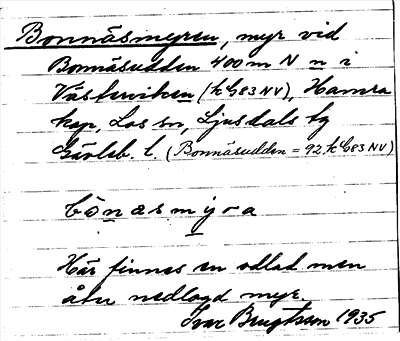 Bonnäsmyren, myr vid
Bonnäsudden 400 m N n i
Västerviken (k G83 NV), Hamra
kap, Los sn, Ljusdals tg
Gävleb. l. (Bonnäsudden = 92, k G83 NV)
bònäsmy̱ra
Här finnes en odlad men
åter nedlagd myr.
Ivar Bengtsson 1935